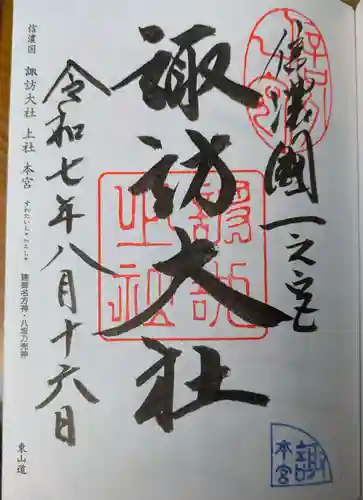 信濃國一之宮
諏訪大社
令和七年八月十六日
信濃国 諏訪大社 上社 本宮
すわたいしゃかみしゃ
建御名方神・八坂刀売神
東山道
諏訪
上社
本宮